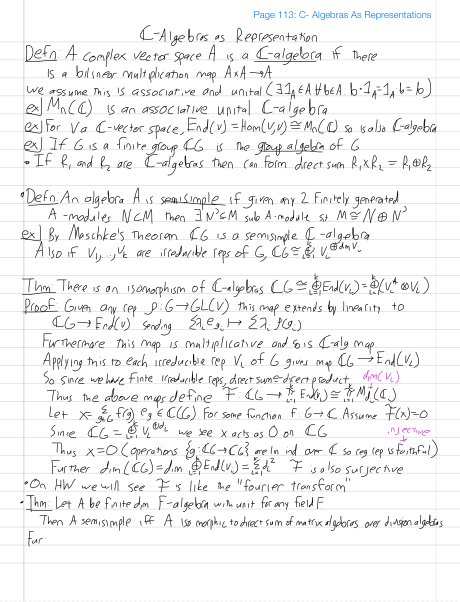 Page 113: C- Algebras As Representations
ℂ-Algebras as Representation
Defn: A complex vector space A is a ℂ-algebra if there
is a bilinear multiplication map A×A→A
we assume this is associative and unital (∃1_A∈A ∀b∈A. b·1_A=1_A b=b)
ex] M_n(ℂ) is an associative unital ℂ-algebra
ex] For V a ℂ-vector space, End(V)=Hom(V,V)≅M_n(ℂ) so is also ℂ-algebra
ex] If G is a finite group ℂG is the group algebra of G
• If R₁ and R₂ are ℂ-algebras then can form direct sum R₁×R₂ = R₁⊕R₂
• Defn An algebra A is semisimple if given any 2 finitely generated
A-modules N⊂M then ∃N'⊆M sub A-module st. M≅N⊕N'
ex] By Maschke's Theorem ℂG is a semisimple ℂ-algebra
Also if V₁,...,V_k are irreducible reps of G, ℂG≅⊕_{i=1}^k V_i^{⊕dim V_i}
Thm There is an isomorphism of ℂ-algebras ℂG≅⊕_{i=1}^k End(V_i)=⊕(V_i*⊗V_i)
Proof: Given any rep ρ:G→GL(V) this map extends by linearity to
ℂG→End(V) sending Σλ_i e_{g_i}↦Σλ_i ρ(g_i)
Furthermore this map is multiplicative and so is ℂ-alg map
Applying this to each irreducible rep V_i of G gives map ℂG→End(V_i)
So since we have finite irreducible reps, direct sum=direct product dim(V_i)
Thus the above maps define F: ℂG→∏_{i=1}^k End(V_i)≅∏_{i=1}^k M_{d_i}(ℂ)
Let x=Σ_{g∈G} f(g)·e_g∈ℂ(G) For some function f:G→ℂ Assume F(x)=0
Since ℂG=⊕V_i^{⊕d_i} we see x acts as 0 on ℂG injective
Thus x=0 (operations {g:ℂG→ℂG} are lin ind over ℂ so reg rep is faithful)
Further dim(ℂG)=dim ⊕End(V_i)=Σd_i² F is also surjective
• On HW we will see F is like the "fourier transform"
• Thm: Let A be finite dim F-algebra with unit for any field F
Then A semisimple iff A isomorphic to direct sum of matrix algebras over division algebras
Fur